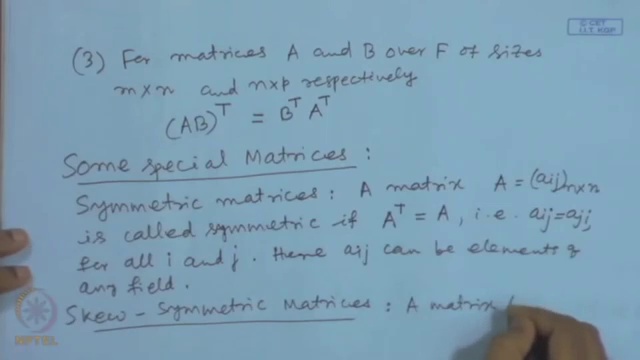 © CET
I.I.T. KGP
(3) For matrices A and B over F of sizes
m×n and n×p respectively
(AB)ᵀ = Bᵀ Aᵀ
Some special Matrices :
Symmetric matrices : A matrix A = (aij)n×n
is called symmetric if Aᵀ = A , i.e. aij = aji
for all i and j . Here aij can be elements of
any field .
Skew - Symmetric Matrices : A matrix
NPTEL